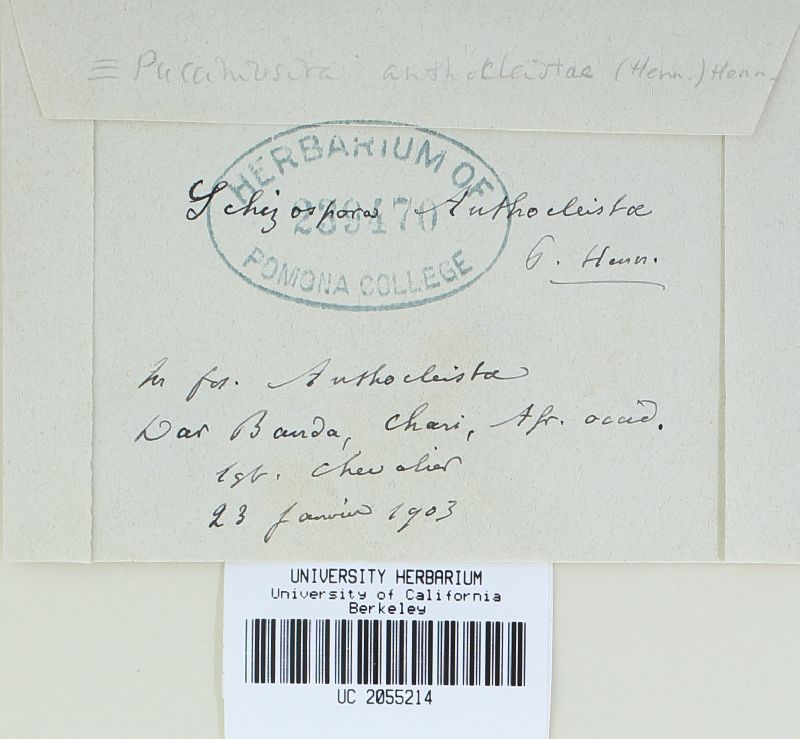 ≡ Puccinosira anthocleistae (Henn.) Henn.
HERBARIUM OF
239470
POMONA COLLEGE
Schizospora Anthocleistæ
P. Henn.
In fol. Anthocleistæ
Dar Banda, Chari, Afr. occid.
lgt. Chevalier
23 janvier 1903
UNIVERSITY HERBARIUM
University of California
Berkeley
UC 2055214